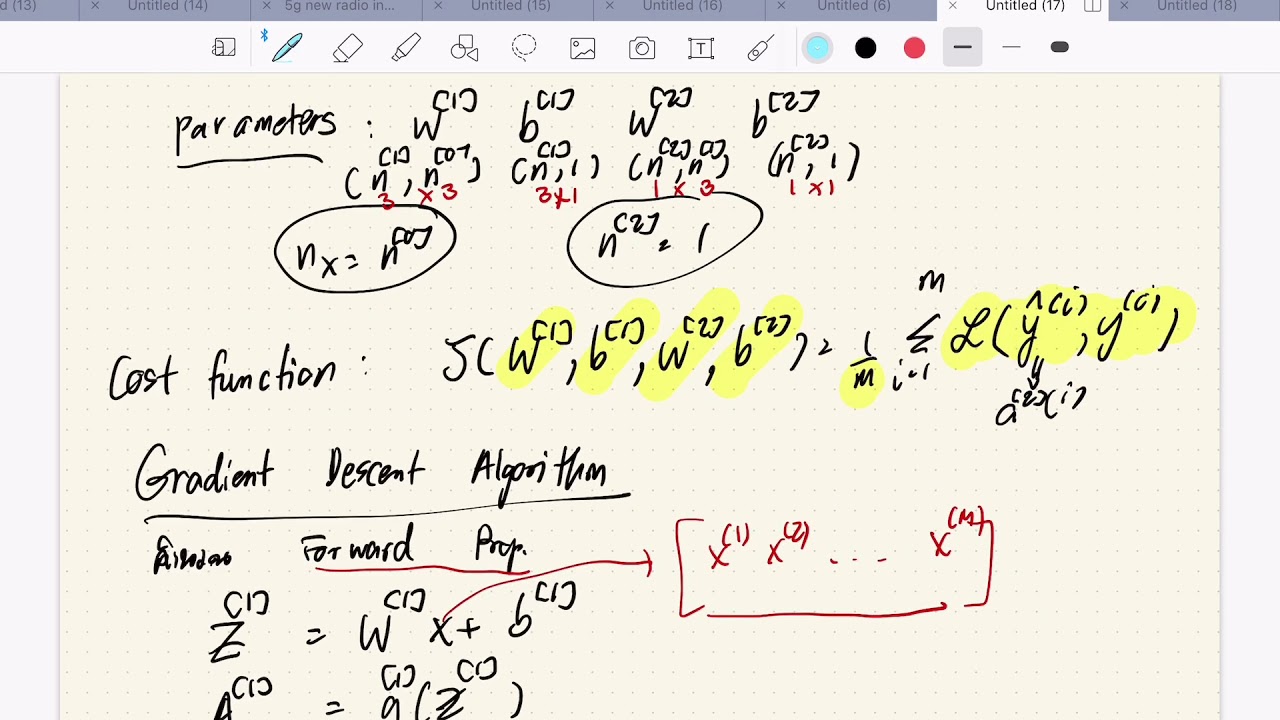 d (13) Untitled (14) 5g new radio in... Untitled (15) Untitled (16) Untitled (6) Untitled (17) Untitled (18)
parameters : W^[1] b^[1] W^[2] b^[2]
(n^[1], n^[0]) (n^[1], 1) (n^[2], n^[1]) (n^[2], 1)
3 x 3 3x1 1 x 3 1 x 1
n_x = n^[0] n^[2] = 1
Cost function : J(W^[1], b^[1], W^[2], b^[2]) = 1/m Σ_{i=1}^m L(ŷ^(i), y^(i))
a^[2](i)
Gradient Descent Algorithm
Forward Prop. [x^(1) x^(2) ... x^(m)]
Z^[1] = W^[1] X + b^[1]
A^[1] = g^[1](Z^[1])